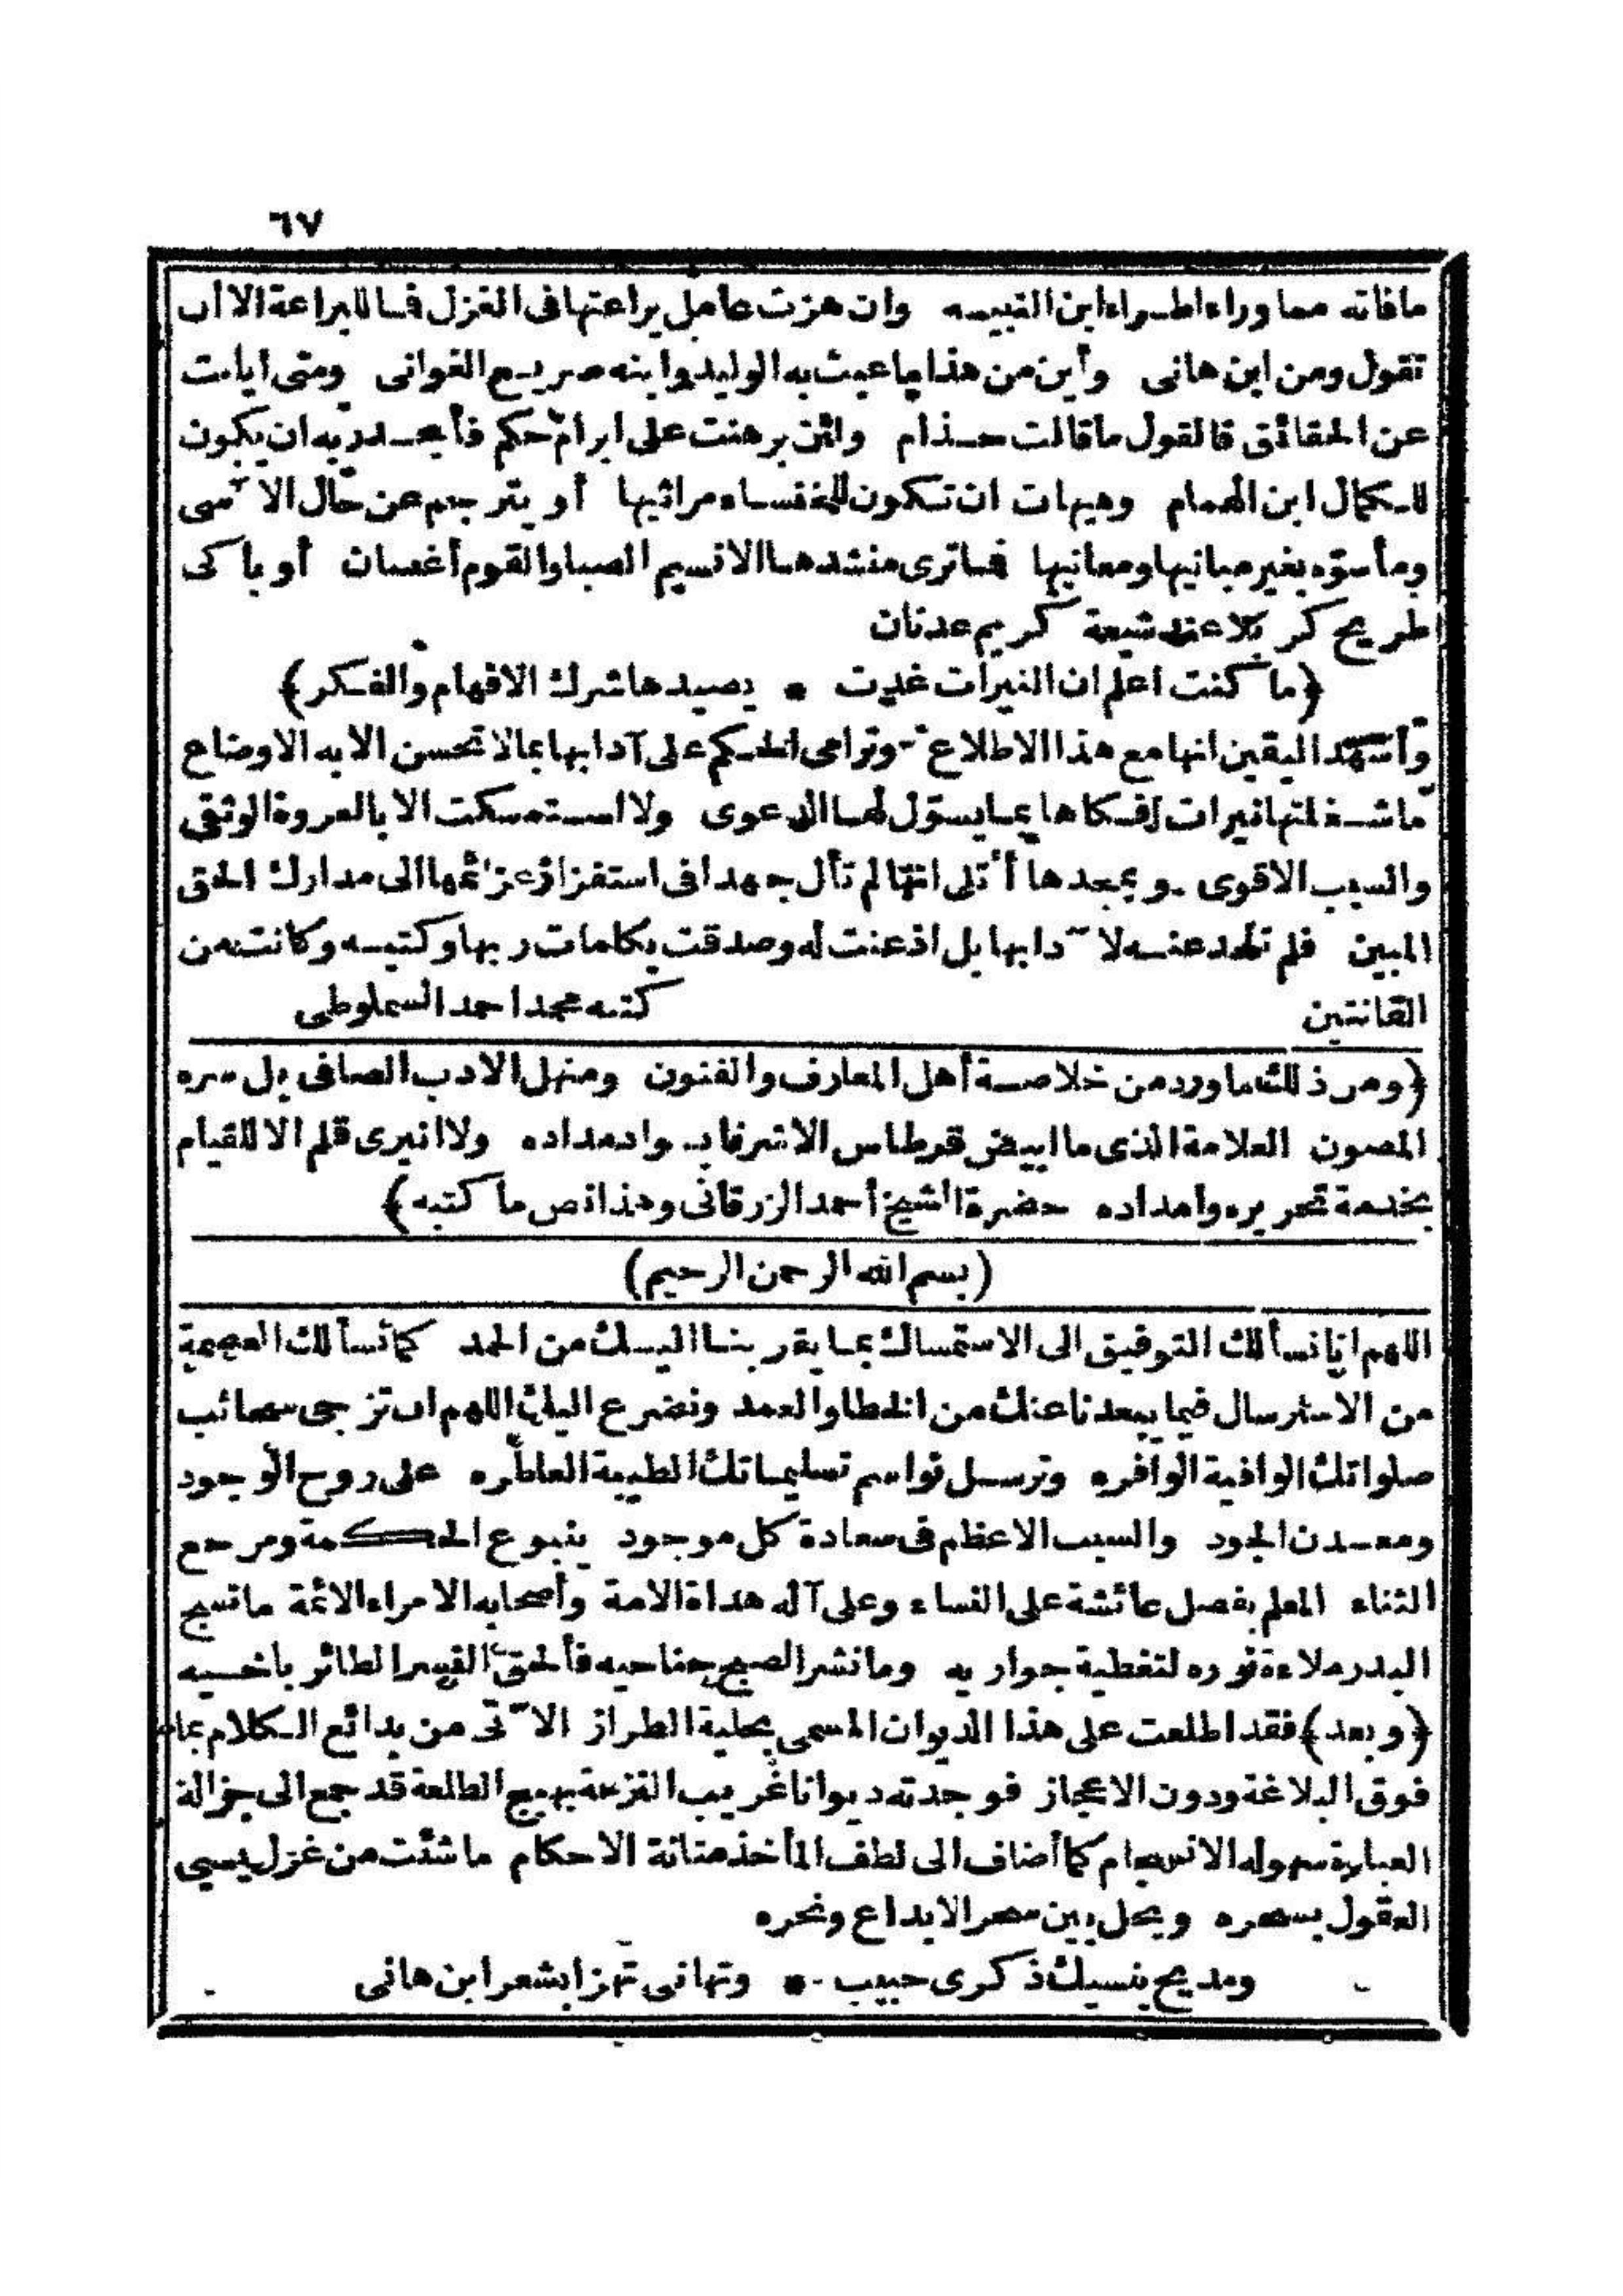 ٦٧
مافاته مما وراءاطراءابن النبيه وان هزت عامل يراعتها فى الغزل فاللبراعة الاأن
تقول ومن ابن هانى وأين من هذا ماعبث به الوليد وابنه صريع الغوانى ومتى أبانت
عن الحقائق فالقول ماقالت حذام ولئن برهنت على ابرام حكم فأجدر به ان يكون
للكمال ابن الهمام وهيهات ان تكون للخنساء مراثيها أو يترجم عن حال الآسى
ومأسوّه بغير مبانيها ومعانيها فماترى منشدها الانسيم الصباوالقوم أغصان أو باكى
طريح كربلاعند شيعة كريم عدنان
﴿ما كنت اعلم ان النيرات غدت * يصيدهاشرك الافهام والفكر﴾
وأشهد اليقين انها مع هذا الاطلاع وترامى الحكم على آدابها بمالاتحسن الابه الاوضاع
ماشغلتها نيرات أفكاها بمايسوّل لها الدعوى ولااستمسكت الابالعروة الوثقى
والسبب الاقوى وبمجدها أئتلى انها لم تأل جهدا فى استفزاز عزائمها الى مدارك الحق
المبين فلم تلحد عنه لآدابها بل اذعنت له وصدقت بكلمات ربها وكتبه وكانت من
القانتين كتبه محمد احمد السملوطى
﴿ومن ذلك ماورد من خلاصة أهل المعارف والفنون ومنهل الادب الصافى بل سره
المصون العلامة الذى ماابيض قرطاس الاتشرفابسوادمداده ولاانبرى قلم الاللقيام
بخدمة تحريره وامداده حضرة الشيخ أحمد الزرقانى وهذا نص ما كتبه﴾
(بسم الله الرحمن الرحيم)
اللهم انا نسألك التوفيق الى الاستمساك بما يقربنا اليك من الحمد كمانسألك العصمة
من الاسترسال فيما يبعدنا عنك من الخطاوالعمد ونضرع اليك اللهم ان تزجى سحائب
صلواتك الوافية الوافره وترسل نواسم تسليماتك الطيبة العاطره على روح الوجود
ومعدن الجود والسبب الاعظم فى سعادة كل موجود ينبوع الحكمة ومرجع
الثناء المعلم بفضل عائشة على النساء وعلى آله هداة الامة وأصحابه الامراء الائمة مانسج
البدر ملاءة نوره لتغطية جواريه ومانشر الصبح جناحيه فألحق النسر الطائر باخيه
﴿وبعد﴾ فقد اطلعت على هذا الديوان المسمى بحلية الطراز الآتى من بدائع الكلام بما
فوق البلاغة ودون الاعجاز فوجدته ديوانا غريب النزعة بهيج الطلعة قد جمع الى جزالة
العبارة سهولة الانسجام كماأضاف الى لطف المأخذ متانة الاحكام ماشئت من غزل يسبى
العقول بسحره ويحل بين سحر الابداع ونحره
ومديح ينسيك ذكرى حبيب * وتهانى تهزا بشعر ابن هانى